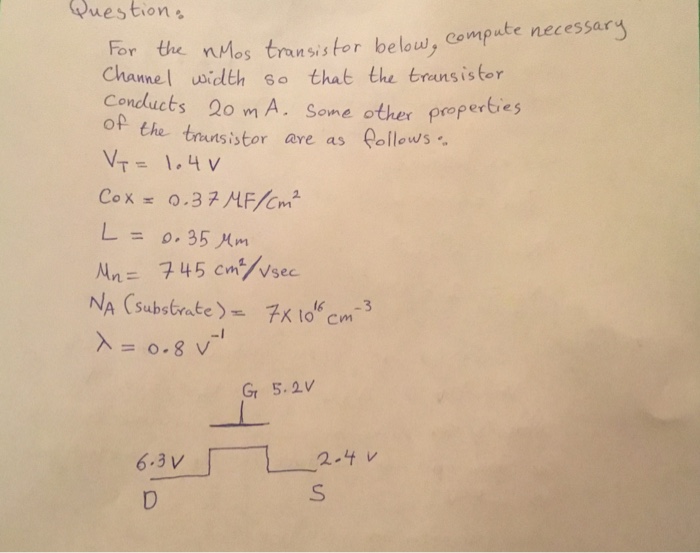 Question:
For the nMos transistor below, compute necessary
Channel width so that the transistor
Conducts 20 mA. Some other properties
of the transistor are as follows:
VT = 1.4 V
Cox = 0.37 MF/cm²
L = 0.35 Mm
Mn = 745 cm²/Vsec
NA (substrate) = 7x10¹⁶ cm⁻³
λ = 0.8 V⁻¹
G 5.2V
6.3V 2.4 V
D S